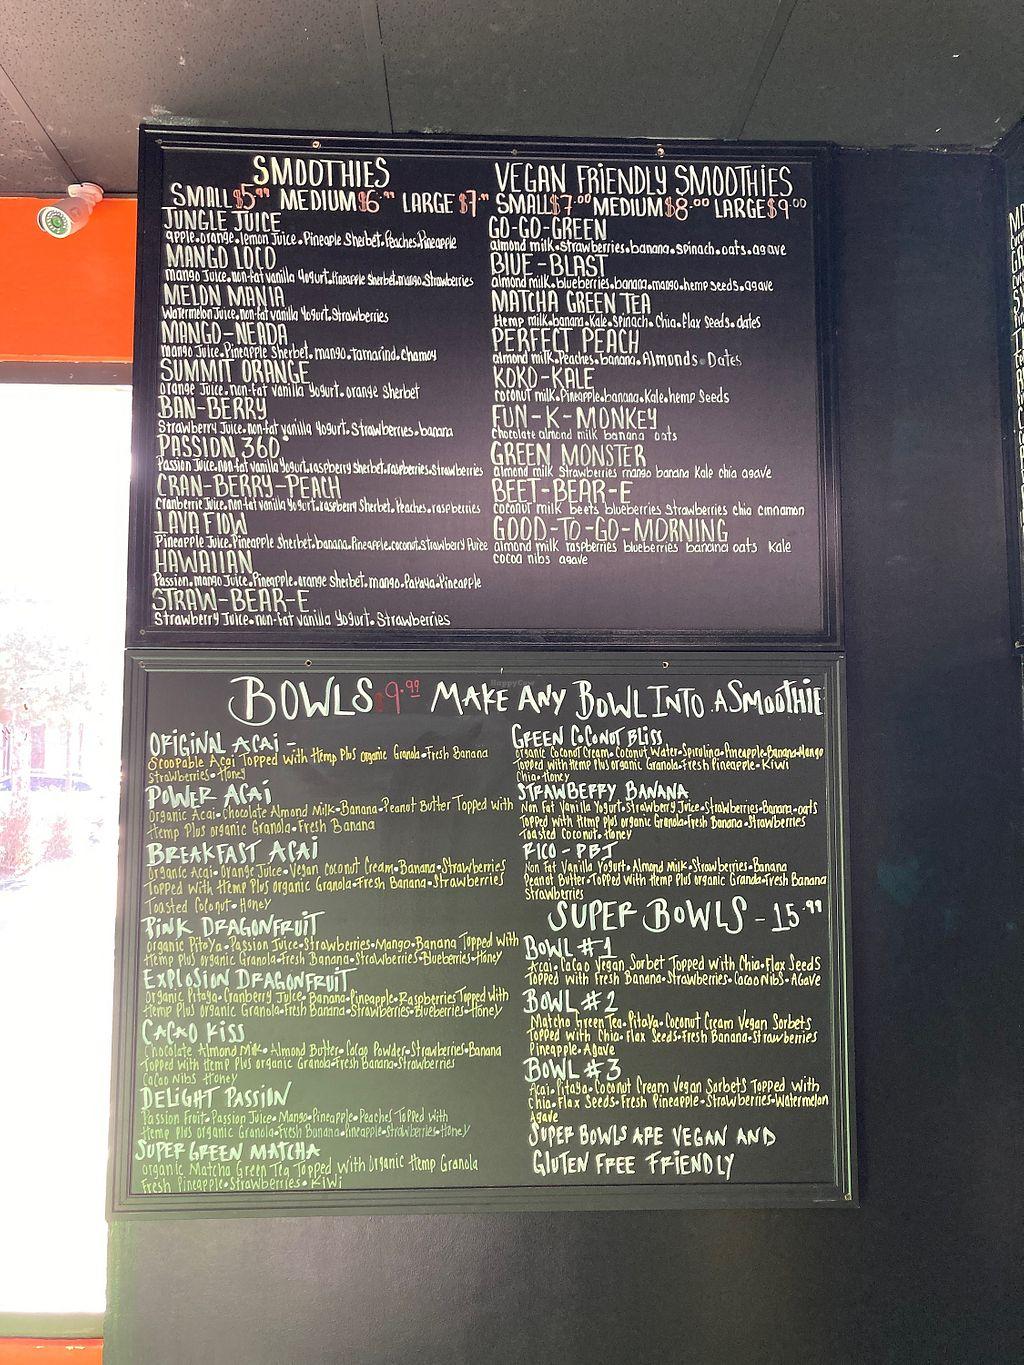 SMOOTHIES
SMALL $5.99 MEDIUM $6.99 LARGE $7.99
JUNGLE JUICE
apple.orange.lemon Juice.Pineapple Sherbet.Peaches.Pineapple
MANGO LOCO
mango Juice.non-fat vanilla Yogurt.Pineapple Sherbet.mango.Strawberries
MELON MANIA
Watermelon Juice.non-fat vanilla Yogurt.Strawberries
MANGO-NEADA
mango Juice.Pineapple Sherbet.mango.tamarind.chamoy
SUMMIT ORANGE
Orange Juice.non-fat vanilla Yogurt.orange Sherbet
BAN-BERRY
Strawberry Juice.non-fat vanilla Yogurt.Strawberries.banana
PASSION 360°
Passion Juice.non-fat vanilla Yogurt.raspberry Sherbet.raspberries.Strawberries
CRAN-BERRY-PEACH
Cranberrie Juice.non-fat vanilla Yogurt.raspberry Sherbet.Peaches.raspberries
LAVA FLOW
Pineapple Juice.Pineapple Sherbet.banana.Pineapple.coconut.Strawberry Puree
HAWAIIAN
Passion.mango Juice.Pineapple.orange Sherbet.mango.Papaya.Pineapple
STRAW-BEAR-E
Strawberry Juice.non-fat vanilla Yogurt.Strawberries
VEGAN FRIENDLY SMOOTHIES
SMALL $7.00 MEDIUM $8.00 LARGE $9.00
GO-GO-GREEN
almond milk.strawberries.banana.spinach.oats.agave
BLUE-BLAST
almond milk.blueberries.banana.mango.hemp seeds.agave
MATCHA GREEN TEA
Hemp milk.banana.Kale.spinach.Chia.flax Seeds.dates
PERFECT PEACH
almond milk.Peaches.banana.Almonds.Dates
KOKO-KALE
coconut milk.Pineapple.banana.Kale.hemp Seeds
FUN-K-MONKEY
chocolate almond milk banana oats
GREEN MONSTER
almond milk Strawberries mango banana Kale chia agave
BEET-BEAR-E
coconut milk beets blueberries Strawberries chia cinnamon
GOOD-TO-GO-MORNING
almond milk raspberries blueberries banana oats Kale
cocoa nibs agave
BOWLS $9.99 MAKE ANY BOWL INTO A SMOOTHIE
ORIGINAL ACAI -
Scoopable Acai Topped with Hemp Plus organic Granola-Fresh Banana
Strawberries-Honey
POWER ACAI
Organic Acai-Chocolate Almond Milk-Banana-Peanut Butter Topped with
Hemp Plus organic Granola-Fresh Banana
BREAKFAST ACAI
Organic Acai-Orange Juice-Vegan Coconut Cream-Banana-Strawberries
Topped with Hemp Plus organic Granola-Fresh Banana-Strawberries
Toasted Coconut-Honey
PINK DRAGONFRUIT
organic Pitaya-Passion Juice-Strawberries-Mango-Banana Topped with
Hemp Plus organic Granola-Fresh Banana-Strawberries-Blueberries-Honey
EXPLOSION DRAGONFRUIT
Organic Pitaya-Cranberry Juice-Banana-Pineapple-Raspberries Topped with
Hemp Plus organic Granola-Fresh Banana-Strawberries-Blueberries-Honey
CACAO KISS
Chocolate Almond Milk-Almond Butter-Cacao Powder-Strawberries-Banana
Topped with Hemp Plus organic Granola-Fresh Banana-Strawberries
Cacao Nibs Honey
DELIGHT PASSION
Passion Fruit-Passion Juice-Mango-Pineapple-Peaches Topped with
Hemp Plus organic Granola-Fresh Banana-Pineapple-Strawberries-Honey
SUPER GREEN MATCHA
organic Matcha Green Tea Topped with Organic Hemp Granola
Fresh Pineapple-Strawberries-Kiwi
GREEN COCONUT BLISS
Organic Coconut Cream-Coconut Water-Spirulina-Pineapple-Banana-Mango
Topped with Hemp Plus organic Granola-Fresh Pineapple-Kiwi
Chia-Honey
STRAWBERRY BANANA
Non Fat Vanilla Yogurt-Strawberry Juice-Strawberries-Banana-oats
Topped with Hemp Plus organic Granola-Fresh Banana-Strawberries
Toasted Coconut-Honey
RICO-PBJ
Non Fat Vanilla Yogurt-Almond Milk-Strawberries-Banana
Peanut Butter-Topped with Hemp Plus organic Granola-Fresh Banana
Strawberries
SUPER BOWLS - 15.99
BOWL #1
Acai-Cacao Vegan Sorbet Topped with Chia-Flax Seeds
Topped with Fresh Banana-Strawberries-Cacao Nibs-Agave
BOWL #2
Matcha Green Tea-Pitaya-Coconut Cream Vegan Sorbets
Topped with Chia-Flax Seeds-Fresh Banana-Strawberries
Pineapple-Agave
BOWL #3
Acai-Pitaya-Coconut Cream Vegan Sorbets Topped with
Chia-Flax Seeds-Fresh Pineapple-Strawberries-Watermelon
Agave
SUPER BOWLS ARE VEGAN AND
GLUTEN FREE FRIENDLY
HappyCow